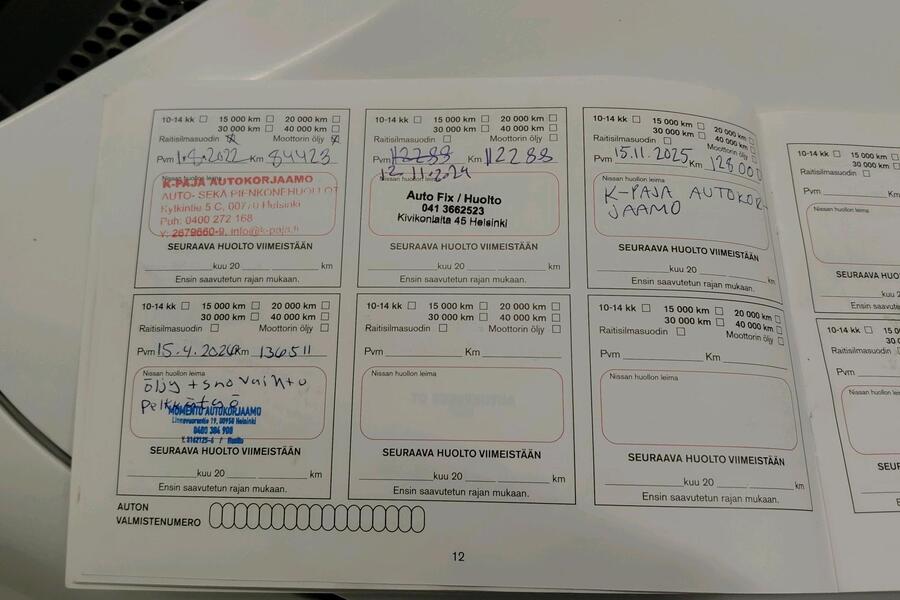 10-14 kk 15 000 km 20 000 km
30 000 km 40 000 km
Raitisilmasuodin Moottorin öljy
Pvm 1.8.2022 Km 84423
Nissan huollon leima
K-PAJA AUTOKORJAAMO
AUTO- SEKÄ PIENKONEHUOLLOT
Kytkintie 5 C, 00770 Helsinki
Puh: 0400 272 168
Y: 2679660-9, info@k-paja.fi
SEURAAVA HUOLTO VIIMEISTÄÄN
kuu 20 km
Ensin saavutetun rajan mukaan.
10-14 kk 15 000 km 20 000 km
30 000 km 40 000 km
Raitisilmasuodin Moottorin öljy
Pvm 112288 Km 112288
12.11.2024
Nissan huollon leima
Auto Fix / Huolto
041 3662523
Kivikonlaita 45 Helsinki
SEURAAVA HUOLTO VIIMEISTÄÄN
kuu 20 km
Ensin saavutetun rajan mukaan.
10-14 kk 15 000 km 20 000 km
30 000 km 40 000 km
Raitisilmasuodin Moottorin öljy
Pvm 15.11.2025 Km 128000
Nissan huollon leima
K-PAJA AUTOKOR-
JAAMO
SEURAAVA HUOLTO VIIMEISTÄÄN
kuu 20 km
Ensin saavutetun rajan mukaan.
10-14 kk 15 000
30 0
Raitisilmasuodin
Pvm
Nissan huollon leima
SEURAAVA HUO
kuu 2
Ensin saavute
10-14 kk 15 000 km 20 000 km
30 000 km 40 000 km
Raitisilmasuodin Moottorin öljy
Pvm 15.4.2026 Km 136511
Nissan huollon leima
öljy + suo vaihto
MOMENTO AUTOKORJAAMO
Linnavuorentie 19, 00950 Helsinki
0400 384 908
SEURAAVA HUOLTO VIIMEISTÄÄN
kuu 20 km
Ensin saavutetun rajan mukaan.
10-14 kk 15 000 km 20 000 km
30 000 km 40 000 km
Raitisilmasuodin Moottorin öljy
Pvm Km
Nissan huollon leima
SEURAAVA HUOLTO VIIMEISTÄÄN
kuu 20 km
Ensin saavutetun rajan mukaan.
10-14 kk 15 000 km 20 000 km
30 000 km 40 000 km
Raitisilmasuodin Moottorin öljy
Pvm Km
Nissan huollon leima
SEURAAVA HUOLTO VIIMEISTÄÄN
kuu 20 km
Ensin saavutetun rajan mukaan.
10-14 kk 15 0
30
Raitisilmasuodin
Pvm
Nissan huollon leima
SEUR
E
AUTON
VALMISTENUMERO
12